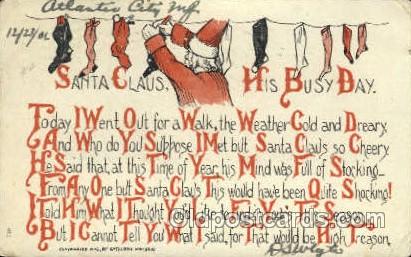 Atlantic City NJ
12/23/06
Santa Claus, His Busy Day.
Today I Went Out for a Walk, the Weather Cold and Dreary,
And Who do You Suppose I Met but Santa Claus so Cheery
He Said that, at this Time of Year, his Mind was Full of Stocking—
From Any One but Santa Claus This would have been Quite Shocking!
I told Him What I Thought You'd like
But I Cannot Tell You What I said, for That would be High Treason.